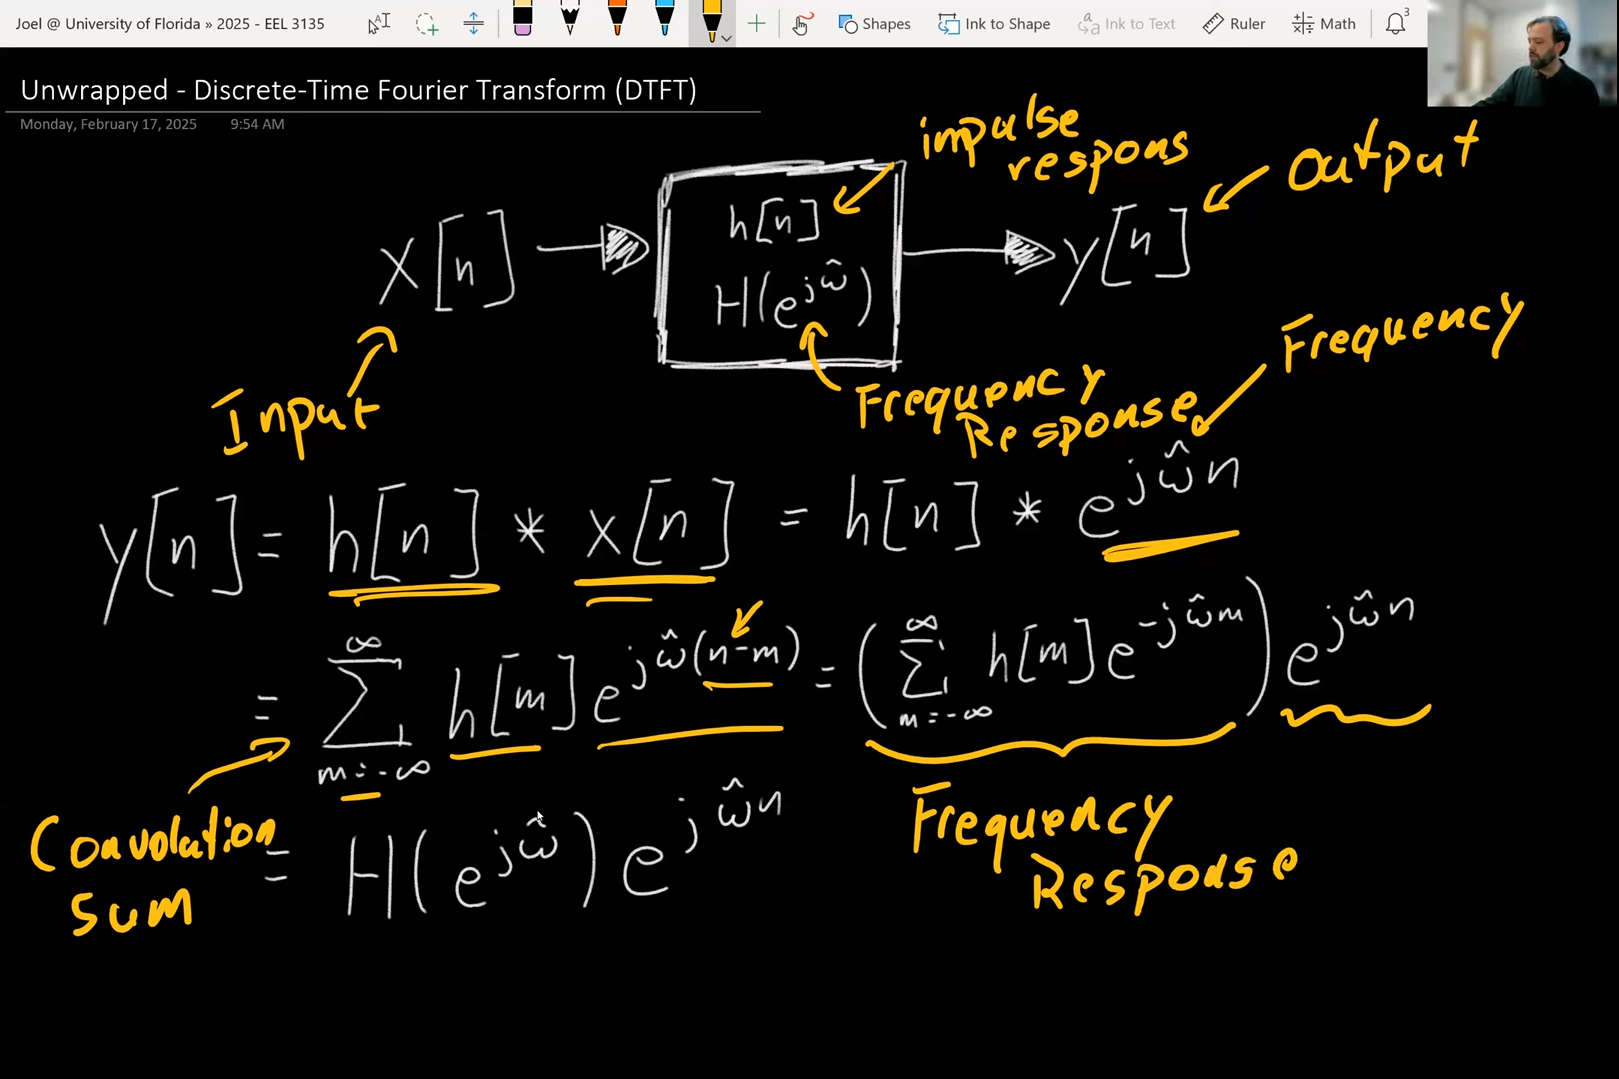 Joel @ University of Florida » 2025 - EEL 3135
Shapes
Ink to Shape
Ink to Text
Ruler
Math
3
Unwrapped - Discrete-Time Fourier Transform (DTFT)
Monday, February 17, 2025 9:54 AM
impulse
respons
output
x[n]
h[n]
H(e^{jω̂})
y[n]
Input
Frequency
Response
Frequency
y[n] = h[n] * x[n] = h[n] * e^{jω̂n}
= ∑_{m=-∞}^{∞} h[m] e^{jω̂(n-m)} = (∑_{m=-∞}^{∞} h[m] e^{-jω̂m}) e^{jω̂n}
Convolution
Sum
= H(e^{jω̂}) e^{jω̂n}
Frequency
Response